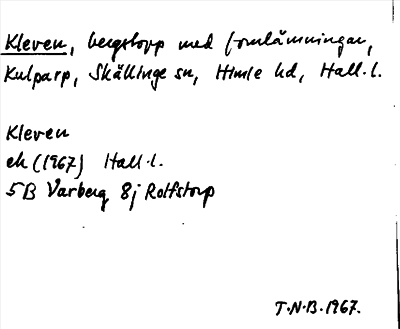 Kleven, bergstopp med fornlämningar,
Kulparp, Skällinge sn, Himle hd, Hall.l.
Kleven
ek (1967) Hall.l.
5B Varberg 8j Rolfstorp
T.N.B.1967.